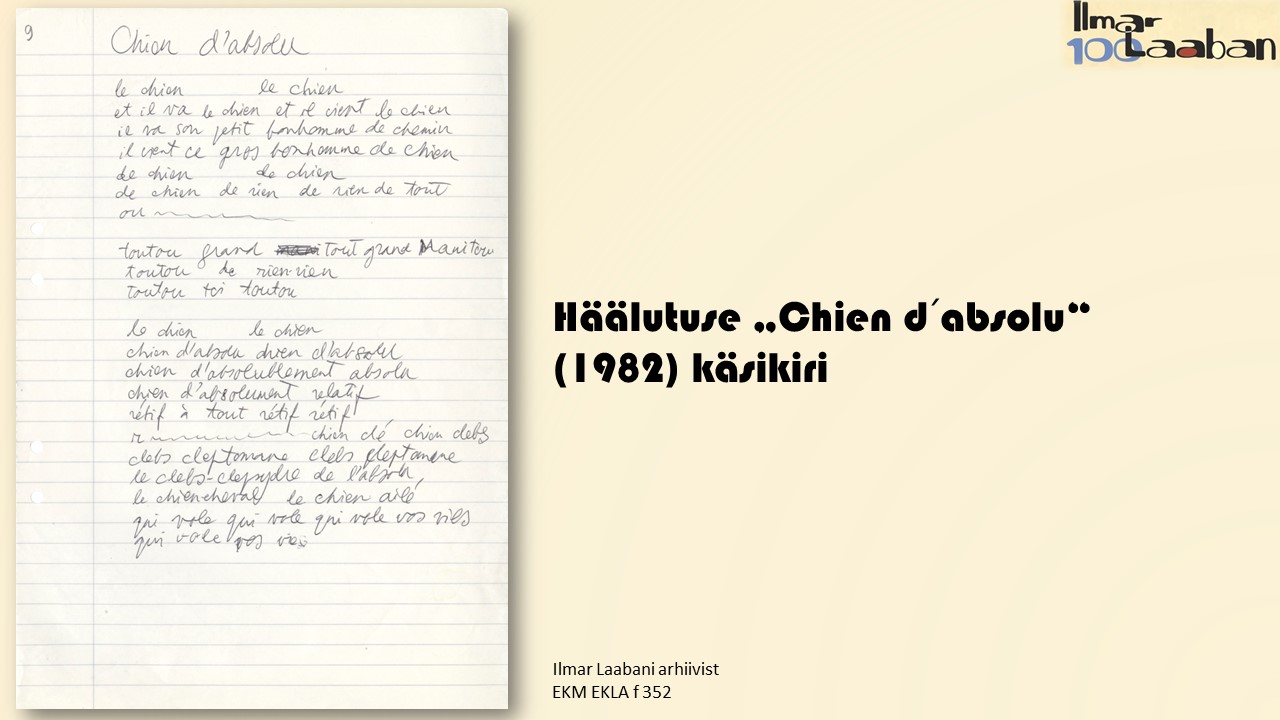 9
Chien d'absolu
le chien le chien
et il va le chien et il vient le chien
il va son petit bonhomme de chemin
il vient ce gros bonhomme de chien
de chien de chien
de chien de rien de rien de tout
ou
toutou grand tout grand Manitou
toutou de rien-rien
toutou toi toutou
le chien le chien
chien d'absolu chien d'absolu
chien d'absolublement absolu
chien d'absolument relatif
rétif à tout rétif rétif
r chien clé chien clebs
clebs cleptomane clebs cleptomane
le clebs-clepsydre de l'absolu
le chiencheval le chien ailé
qui vole qui vole qui vole vos vies
qui vole vos vies
Ilmar
100 Laaban
Häälutuse „Chien d´absolu“
(1982) käsikiri
Ilmar Laabani arhiivist
EKM EKLA f 352